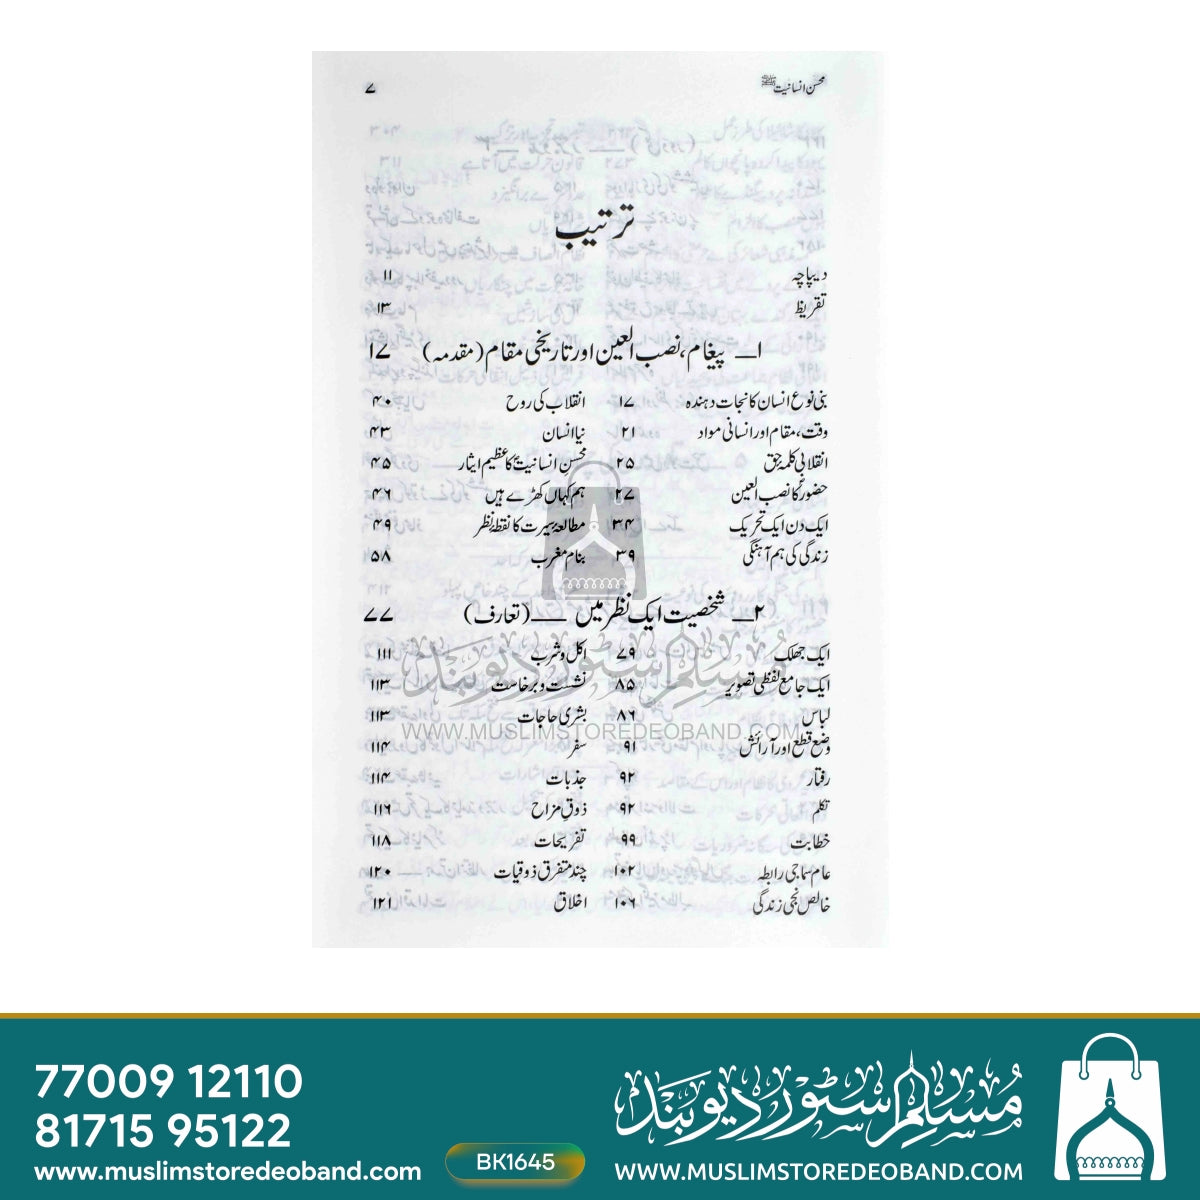 محسن انسانیت ﷺ ۷
ترتیب
دیباچہ ۱۱
تقریظ ۱۳
۱ــ پیغام، نصب العین اور تاریخی مقام (مقدمہ) ۱۷
بنی نوع انسان کا نجات دہندہ ۱۷
وقت، مقام اور انسانی مواد ۲۱
انقلابی کلمۂ حق ۲۵
حضورؐ کا نصب العین ۲۷
ایک دن ایک تحریک ۳۴
زندگی کی ہم آہنگی ۳۹
انقلاب کی روح ۴۰
نیا انسان ۴۳
محسن انسانیتؐ کا عظیم ایثار ۴۵
ہم کہاں کھڑے ہیں ۴۶
مطالعۂ سیرت کا نقطۂ نظر ۴۹
بنام مغرب ۵۸
۲ــ شخصیت ایک نظر میں ــــ (تعارف) ۷۷
ایک جھلک ۷۹
ایک جامع لفظی تصویر ۸۵
لباس ۸۶
وضع قطع اور آرائش ۹۱
رفتار ۹۲
تکلم ۹۲
خطابت ۹۹
عام سماجی رابطہ ۱۰۲
خالص نجی زندگی ۱۰۶
اکل و شرب ۱۱۱
نشست و برخاست ۱۱۳
بشری حاجات ۱۱۳
سفر ۱۱۴
جذبات ۱۱۴
ذوقِ مزاح ۱۱۶
تفریحات ۱۱۸
چند متفرق ذوقیات ۱۲۰
اخلاق ۱۲۱
مسلم سٹور دیوبند
WWW.MUSLIMSTOREDEOBAND.COM
77009 12110
81715 95122
www.muslimstoredeoband.com
BK1645
مسلم سٹور دیوبند
WWW.MUSLIMSTOREDEOBAND.COM